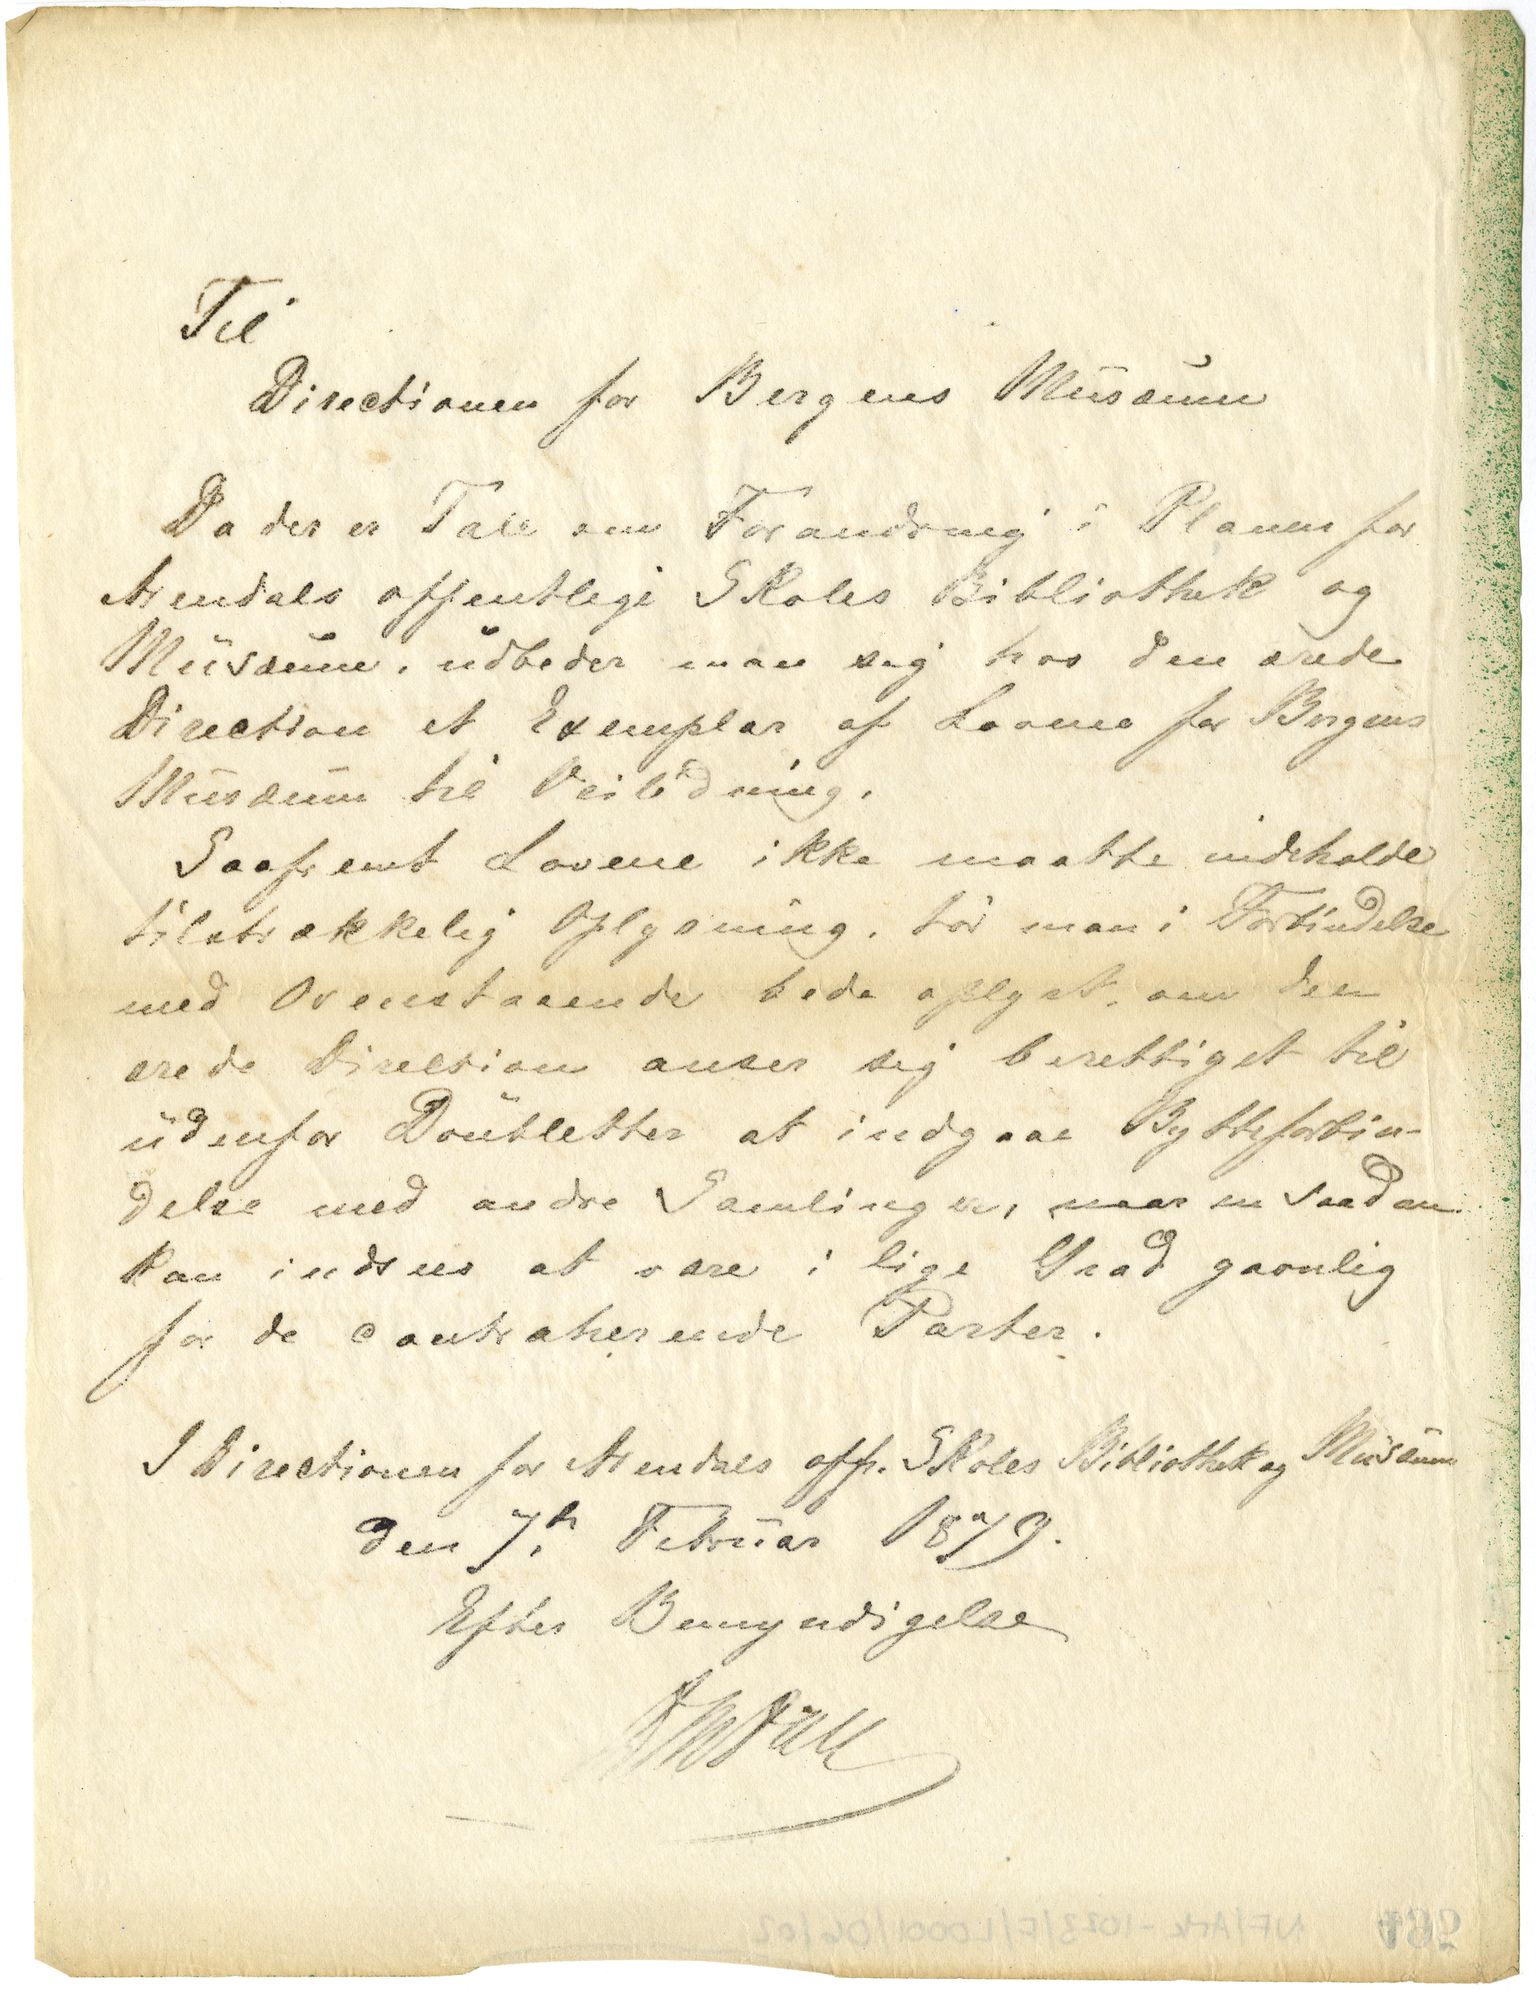 Til
Directionen for Bergens Musæum
Da der er Tale om Forandring i Planen for
Arendals offentlige Skoles Bibliothek og
Musæum, udbeder man sig hos den ærede
Direction et Exemplar af Lovene for Bergens
Musæum til Veiledning.
Saafremt Lovene ikke maatte indeholde
tilstrækkelig Oplysning, tør man i Forbindelse
med Ovenstaaende bede oplyst, om den
ærede Direction anser sig berettiget til
udenfor Doubletter at indgaae Bytteforbin-
delse med andre Samlinger, naar en saadan
kan indsees at være i lige Grad gavnlig
for de contraherende Parter.
I Directionen for Arendals off. Skoles Bibliothek og Musæum
den 7de Februar 1873.
Efter Bemyndigelse